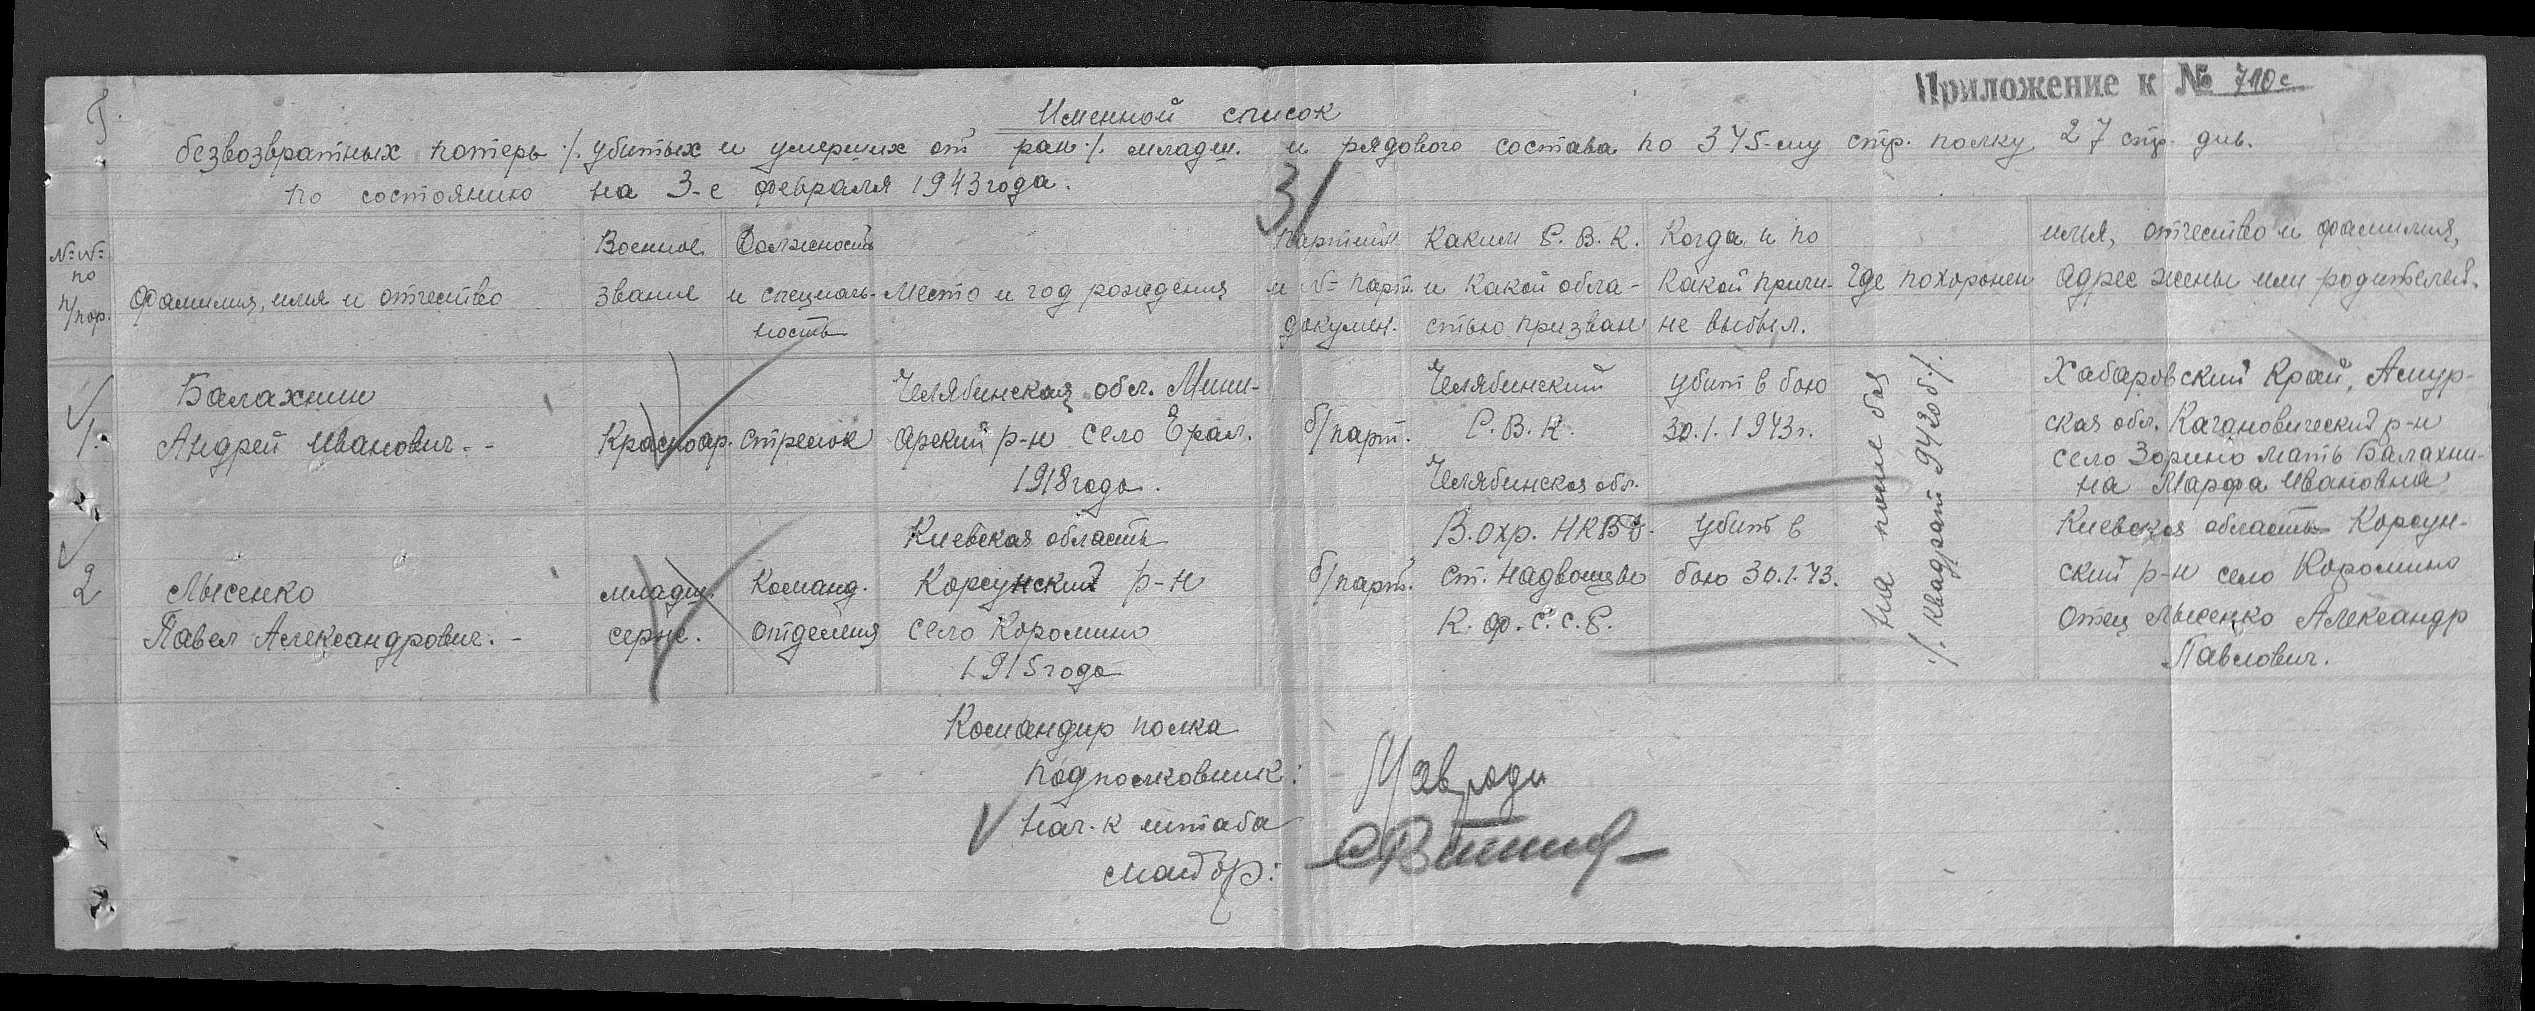 Приложение к № 710с
Именной список
безвозвратных потерь ·/. убитых и умерших от ран ·/. младш. и рядового состава по 345-му стр. полку 27 стр. див.
по состоянию на 3-е февраля 1943 года.
31
№№ по п/пор.
Фамилия, имя и отчество
Военное звание
Должность и специаль-ность
Место и год рождения
партийн. и № парт. докумен.
Каким Р.В.К. и какой обла-стью призван
Когда и по какой причи-не выбыл.
Где похоронен
имя, отчество и фамилия, адрес жены или родителей.
1.
Балахнин
Андрей Иванович. -
Красноар.
стрелок
Челябинская обл. Мини-
арский р-н село Ерал.
1918 года.
б/парт.
Челябинский
Р.В.К.
Челябинская обл.
убит в бою
30.1.1943г.
на поле боя
·/. квадрат 9430б ·/.
Хабаровский Край, Амур-
ская обл. Кагановический р-н
село Зорино мать Балахни-
на Марфа Ивановна
2
Лысенко
Павел Александрович. -
младш.
серж.
Команд.
отделения
Киевская область
Корсунский р-н
село Коромино
1915 года
б/парт.
В.охр. НКВД.
ст. Надвоицы
К.Ф.С.С.Р.
убит в
бою 30.1.43.
Киевская область Корсун-
ский р-н село Коромино
Отец Лысенко Александр
Павлович.
Командир полка
подполковник:
Мавроди
нач-к штаба
майор: